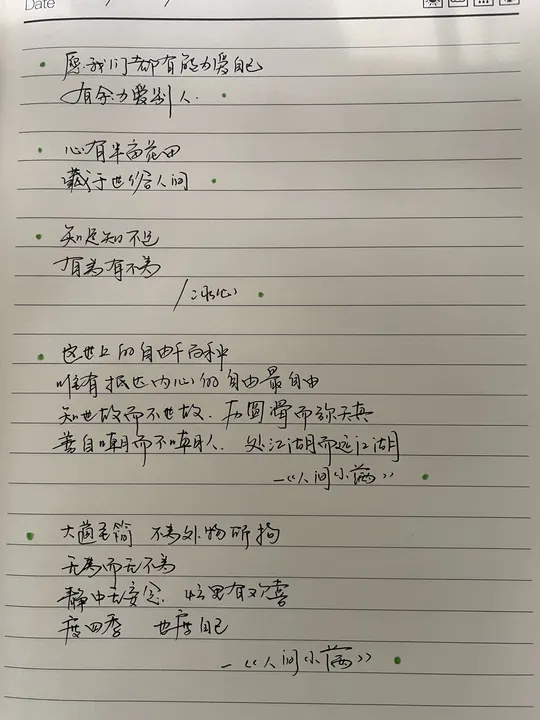 Date
愿我们都有能力爱自己
有余力爱别人.
心有半亩花田
藏于世俗人间
知足知不足
有为有不为
/冰心
这世上的自由千百种
唯有抵达内心的自由最自由
知世故而不世故. 历圆滑而弥天真
善自嘲而不嘲人. 处江湖而远江湖
—《人间小满》
大道至简 不为外物所拘
无为而无不为
静中有安定. 忙里有欢喜
度四季 也度自己
—《人间小满》